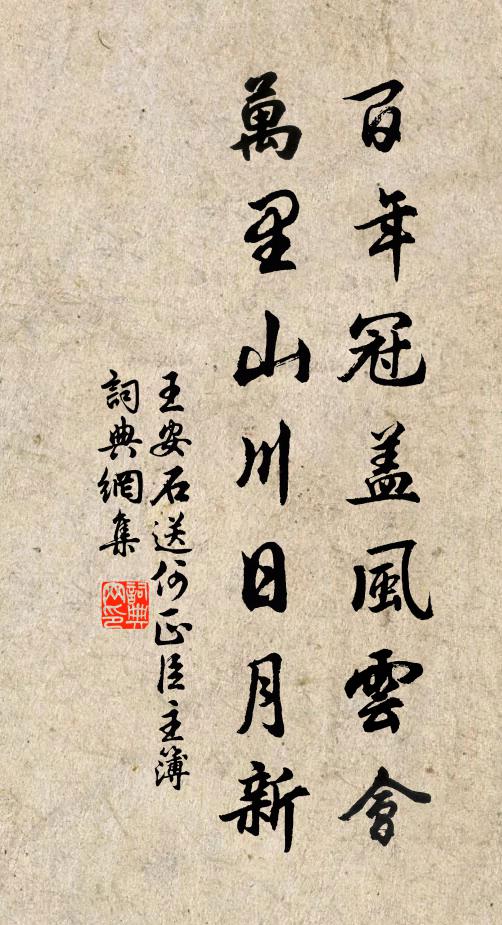 百年冠盖風雲會
萬里山川日月新
王安石送何正臣主簿
詞典網集
詞典网印